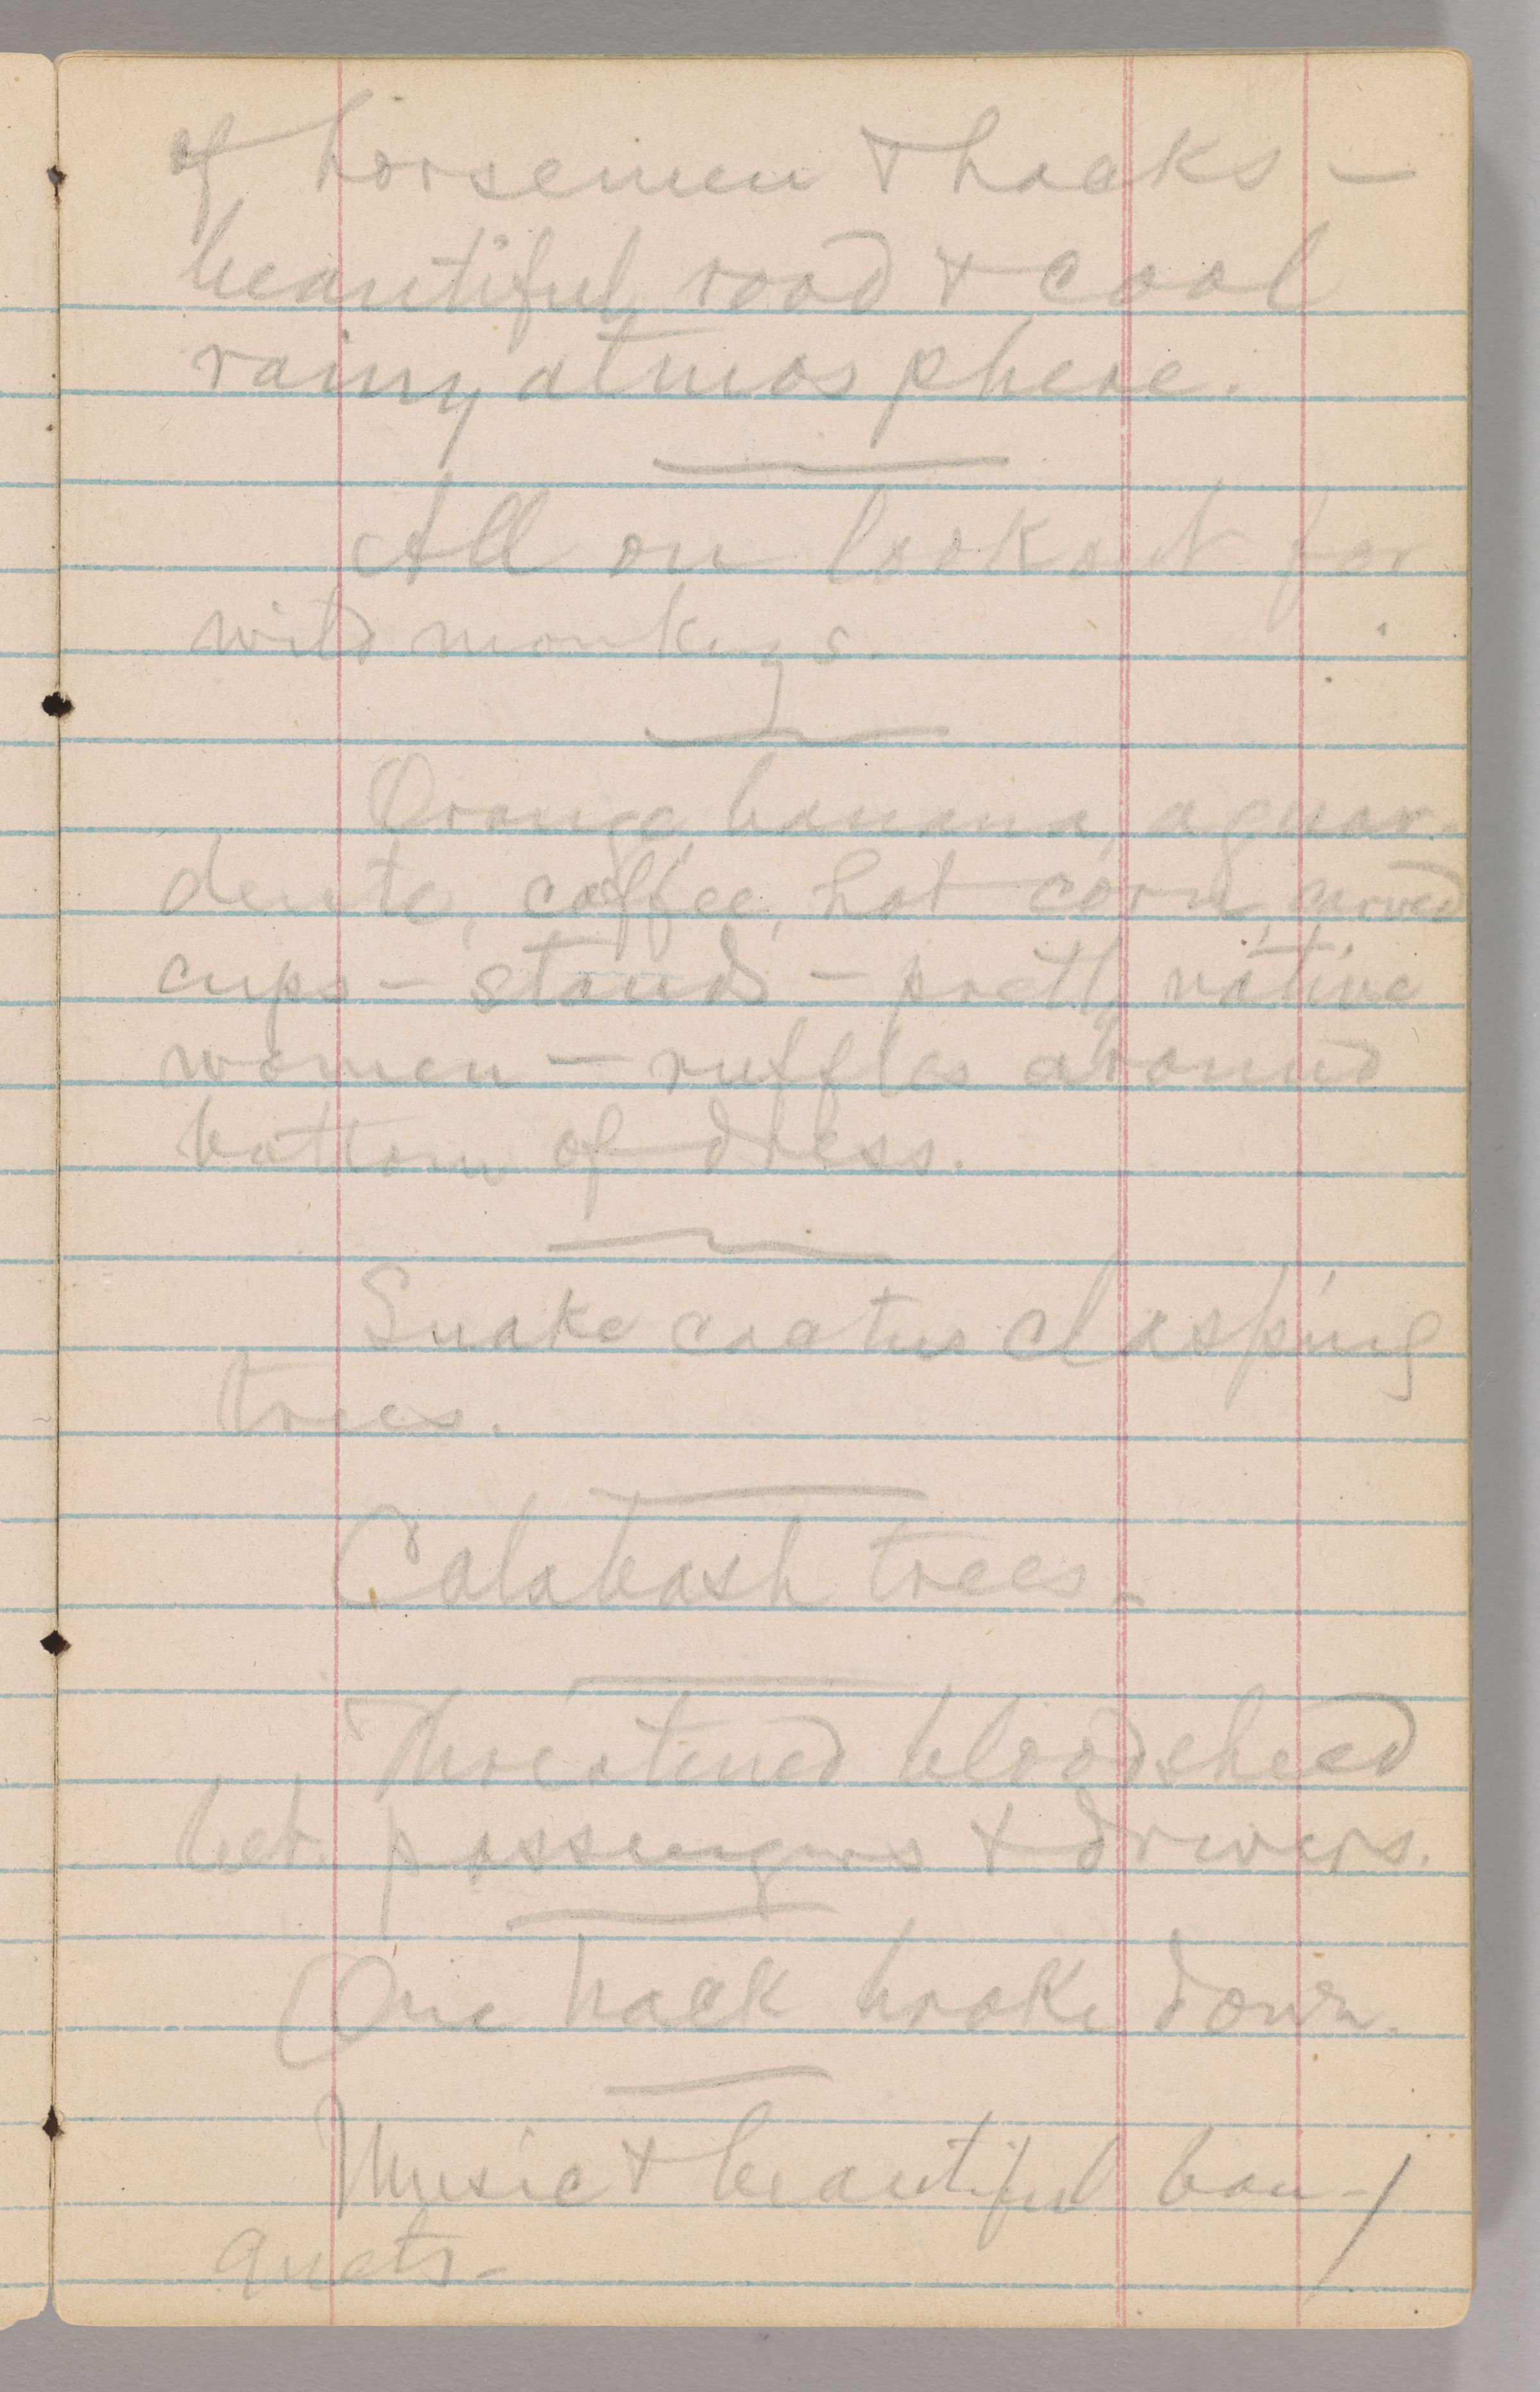 of horsemen & hacks –
beautiful road & cool
rainy atmosphere.
All on lookout for
wild monkeys.
Orange, banana, aguar-
dente, coffee, hot corn, carved
cups – stands – pretty native
women – ruffles around
bottom of dress.
Snake cactus clasping
trees.
Calabash trees –
Threatened bloodsheed
bet. passengers & drivers.
One hack broke down.
Music & beautiful ban-
quets –